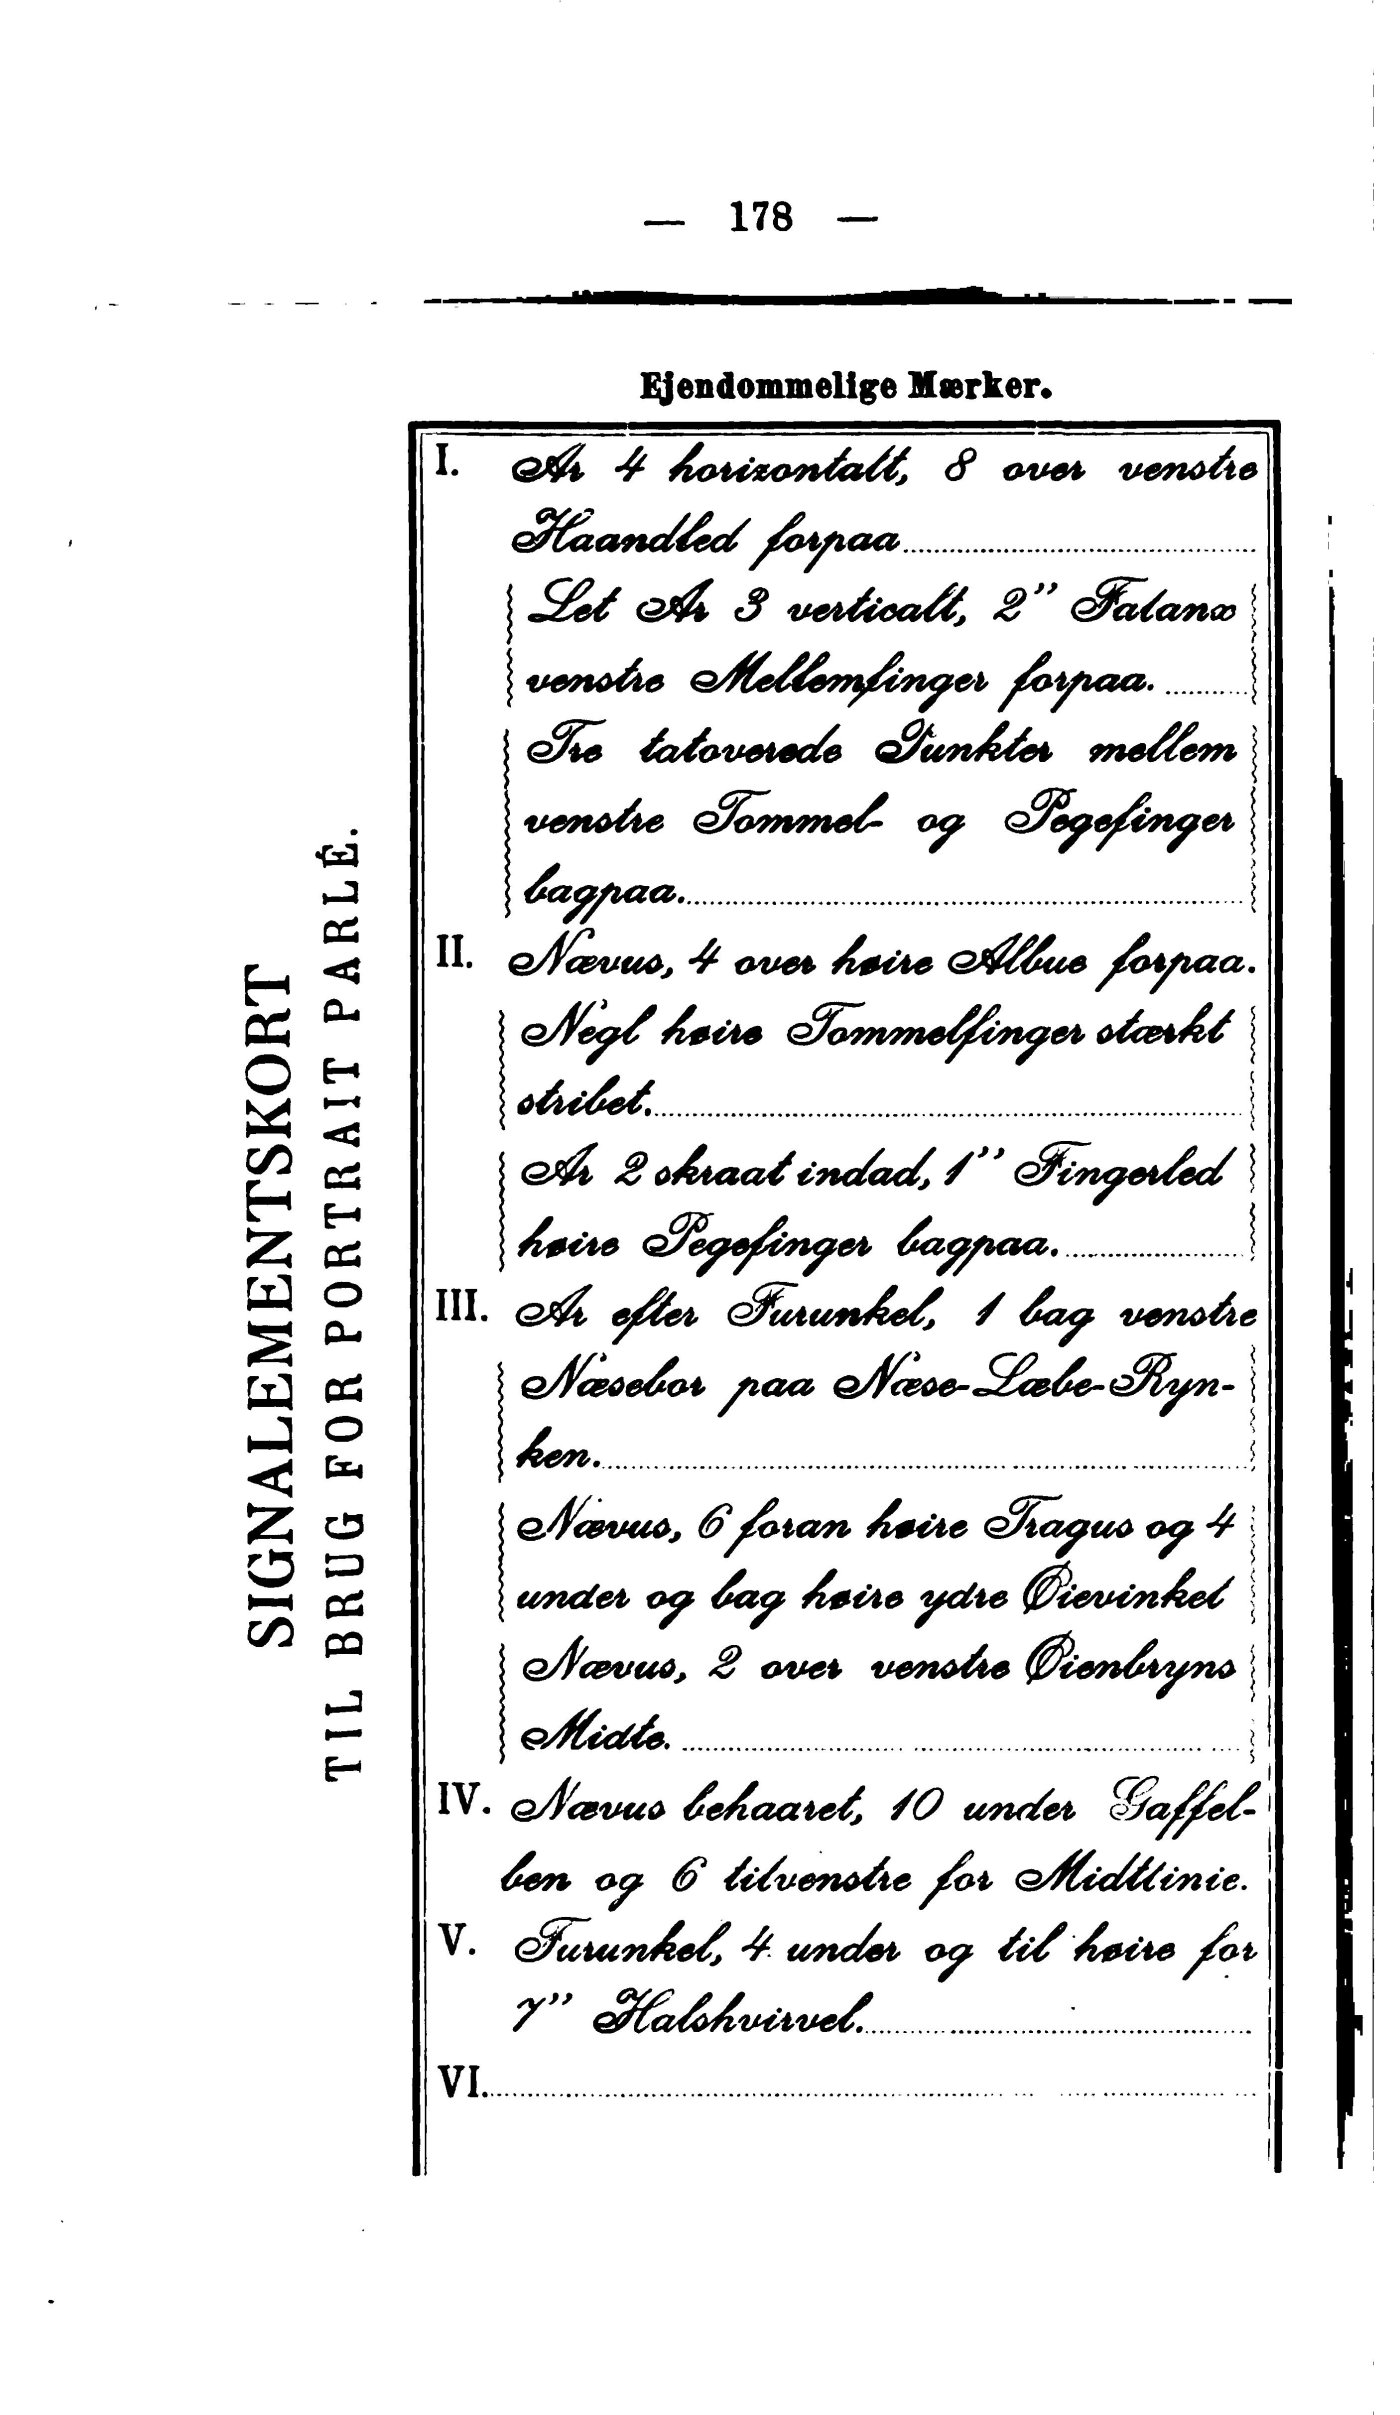 — 178 —
SIGNALEMENTSKORT
TIL BRUG FOR PORTRAIT PARLÉ.
Ejendommelige Mærker.
I. Ar 4 horizontalt, 8 over venstre
Haandled forpaa
Let Ar 3 verticalt, 2" Falanx
venstre Mellemfinger forpaa.
Tre tatoverede Punkter mellem
venstre Tommel- og Pegefinger
bagpaa.
II. Nævus, 4 over høire Albue forpaa.
Negl høire Tommelfinger stærkt
stribet.
Ar 2 skraat indad, 1" Fingerled
høire Pegefinger bagpaa.
III. Ar efter Furunkel, 1 bag venstre
Næsebor paa Næse-Læbe-Ryn-
ken.
Nævus, 6 foran høire Tragus og 4
under og bag høire ydre Øievinkel
Nævus, 2 over venstre Øienbryns
Midte.
IV. Nævus behaaret, 10 under Gaffel-
ben og 6 tilvenstre for Midtlinie.
V. Furunkel, 4 under og til høire for
7" Halshvirvel.
VI.